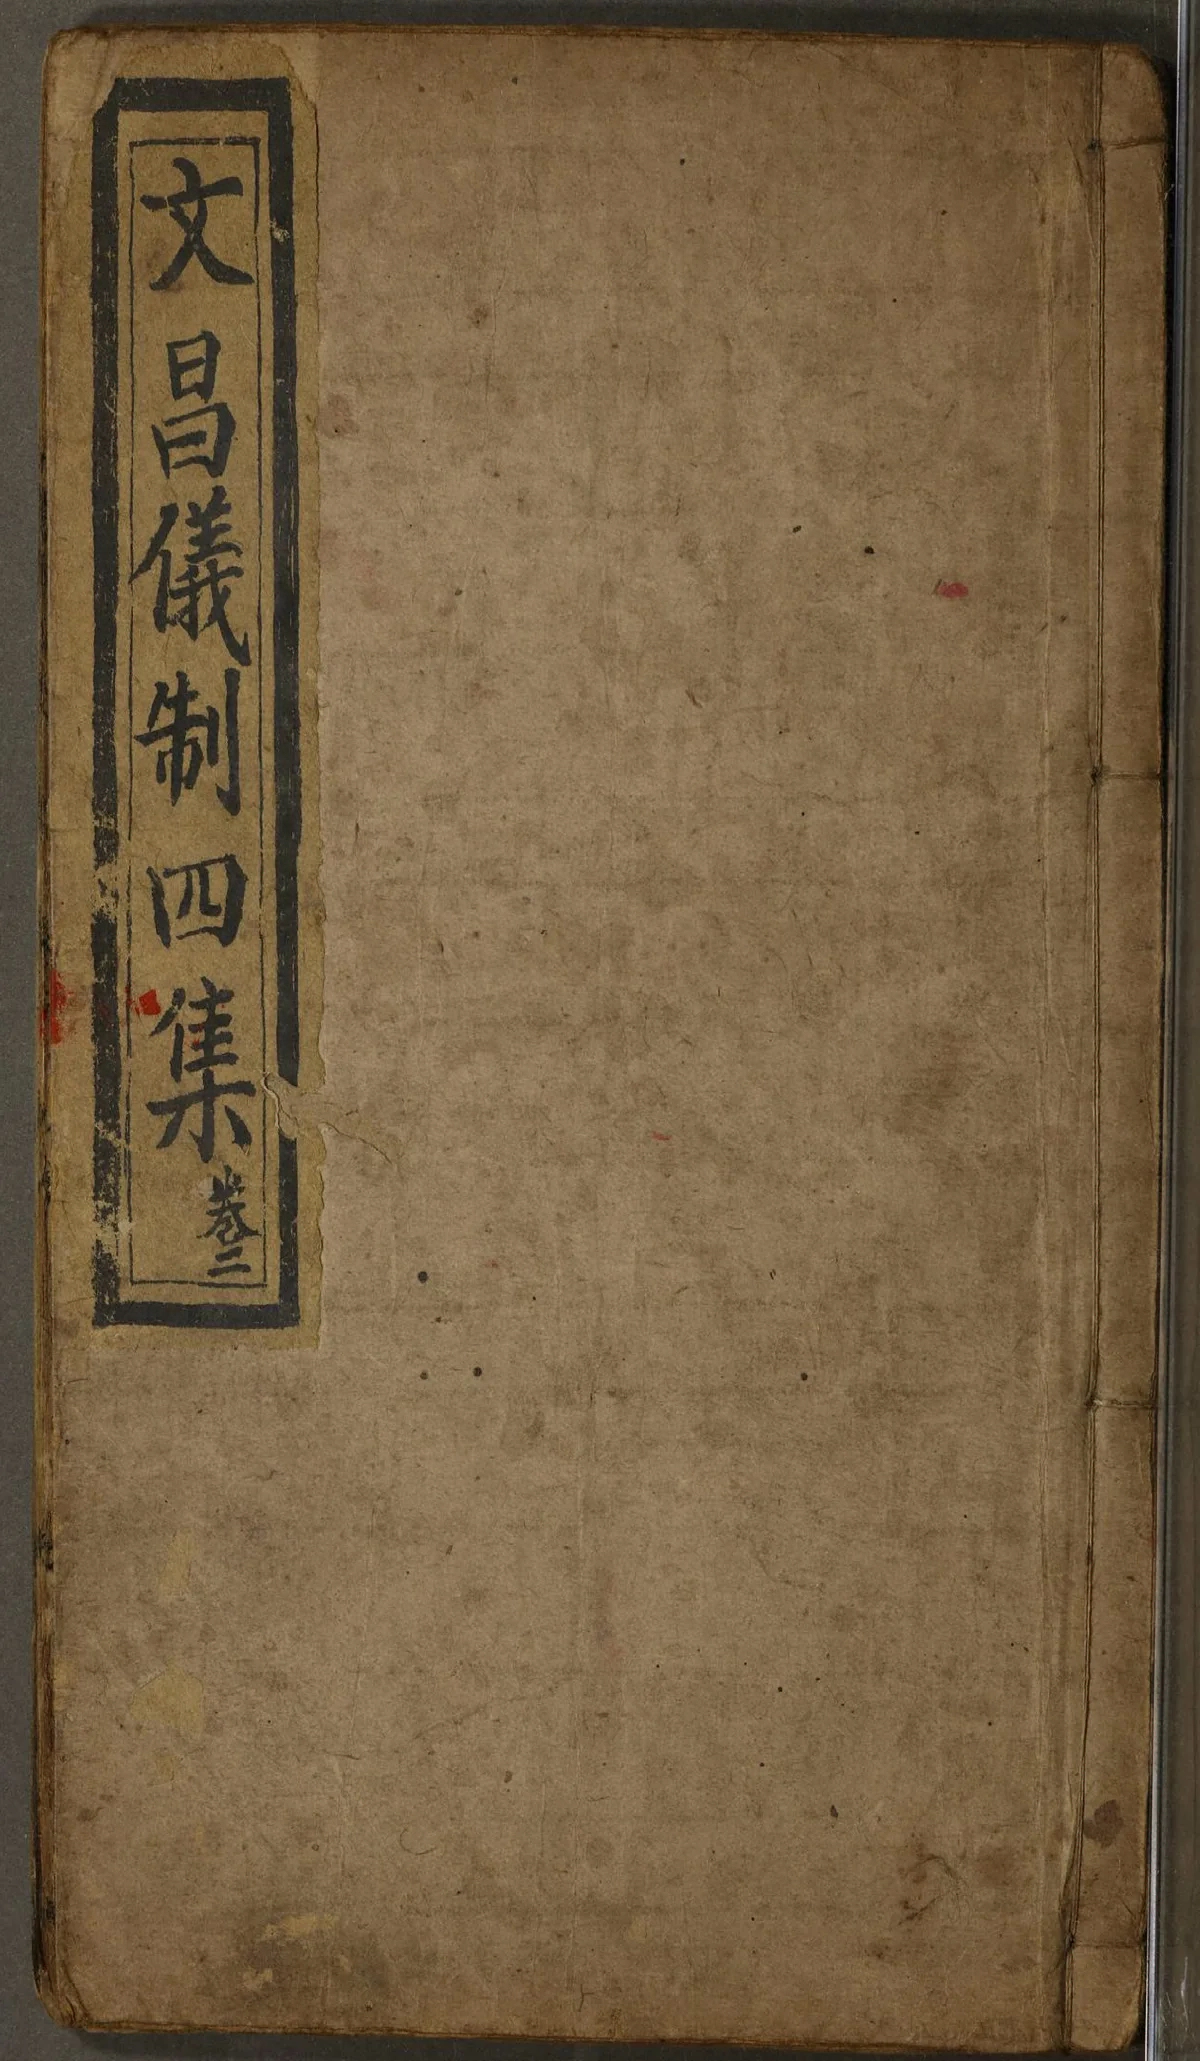 文昌儀制四集
卷二